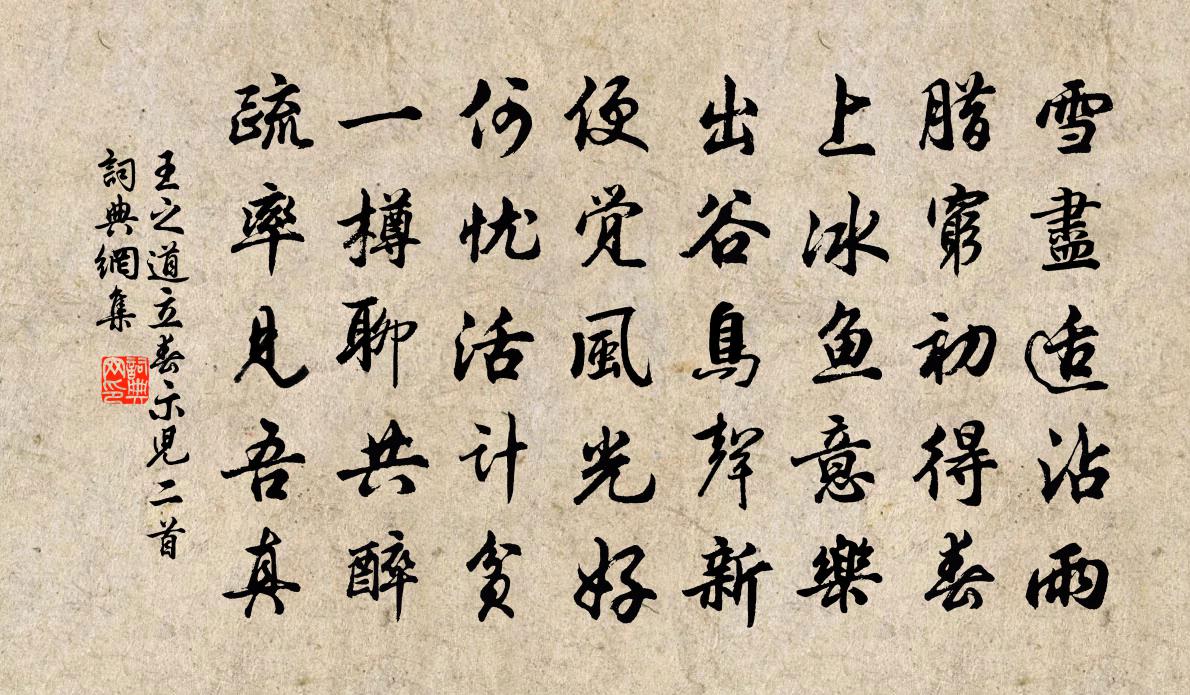 雪盡适沾雨
腊窮初得春
上冰鱼意樂
出谷鳥聲新
便觉風光好
何忧活计貧
一樽聊共醉
疏率見吾真
王之道立春示児二首
詞典網集
詞典网印